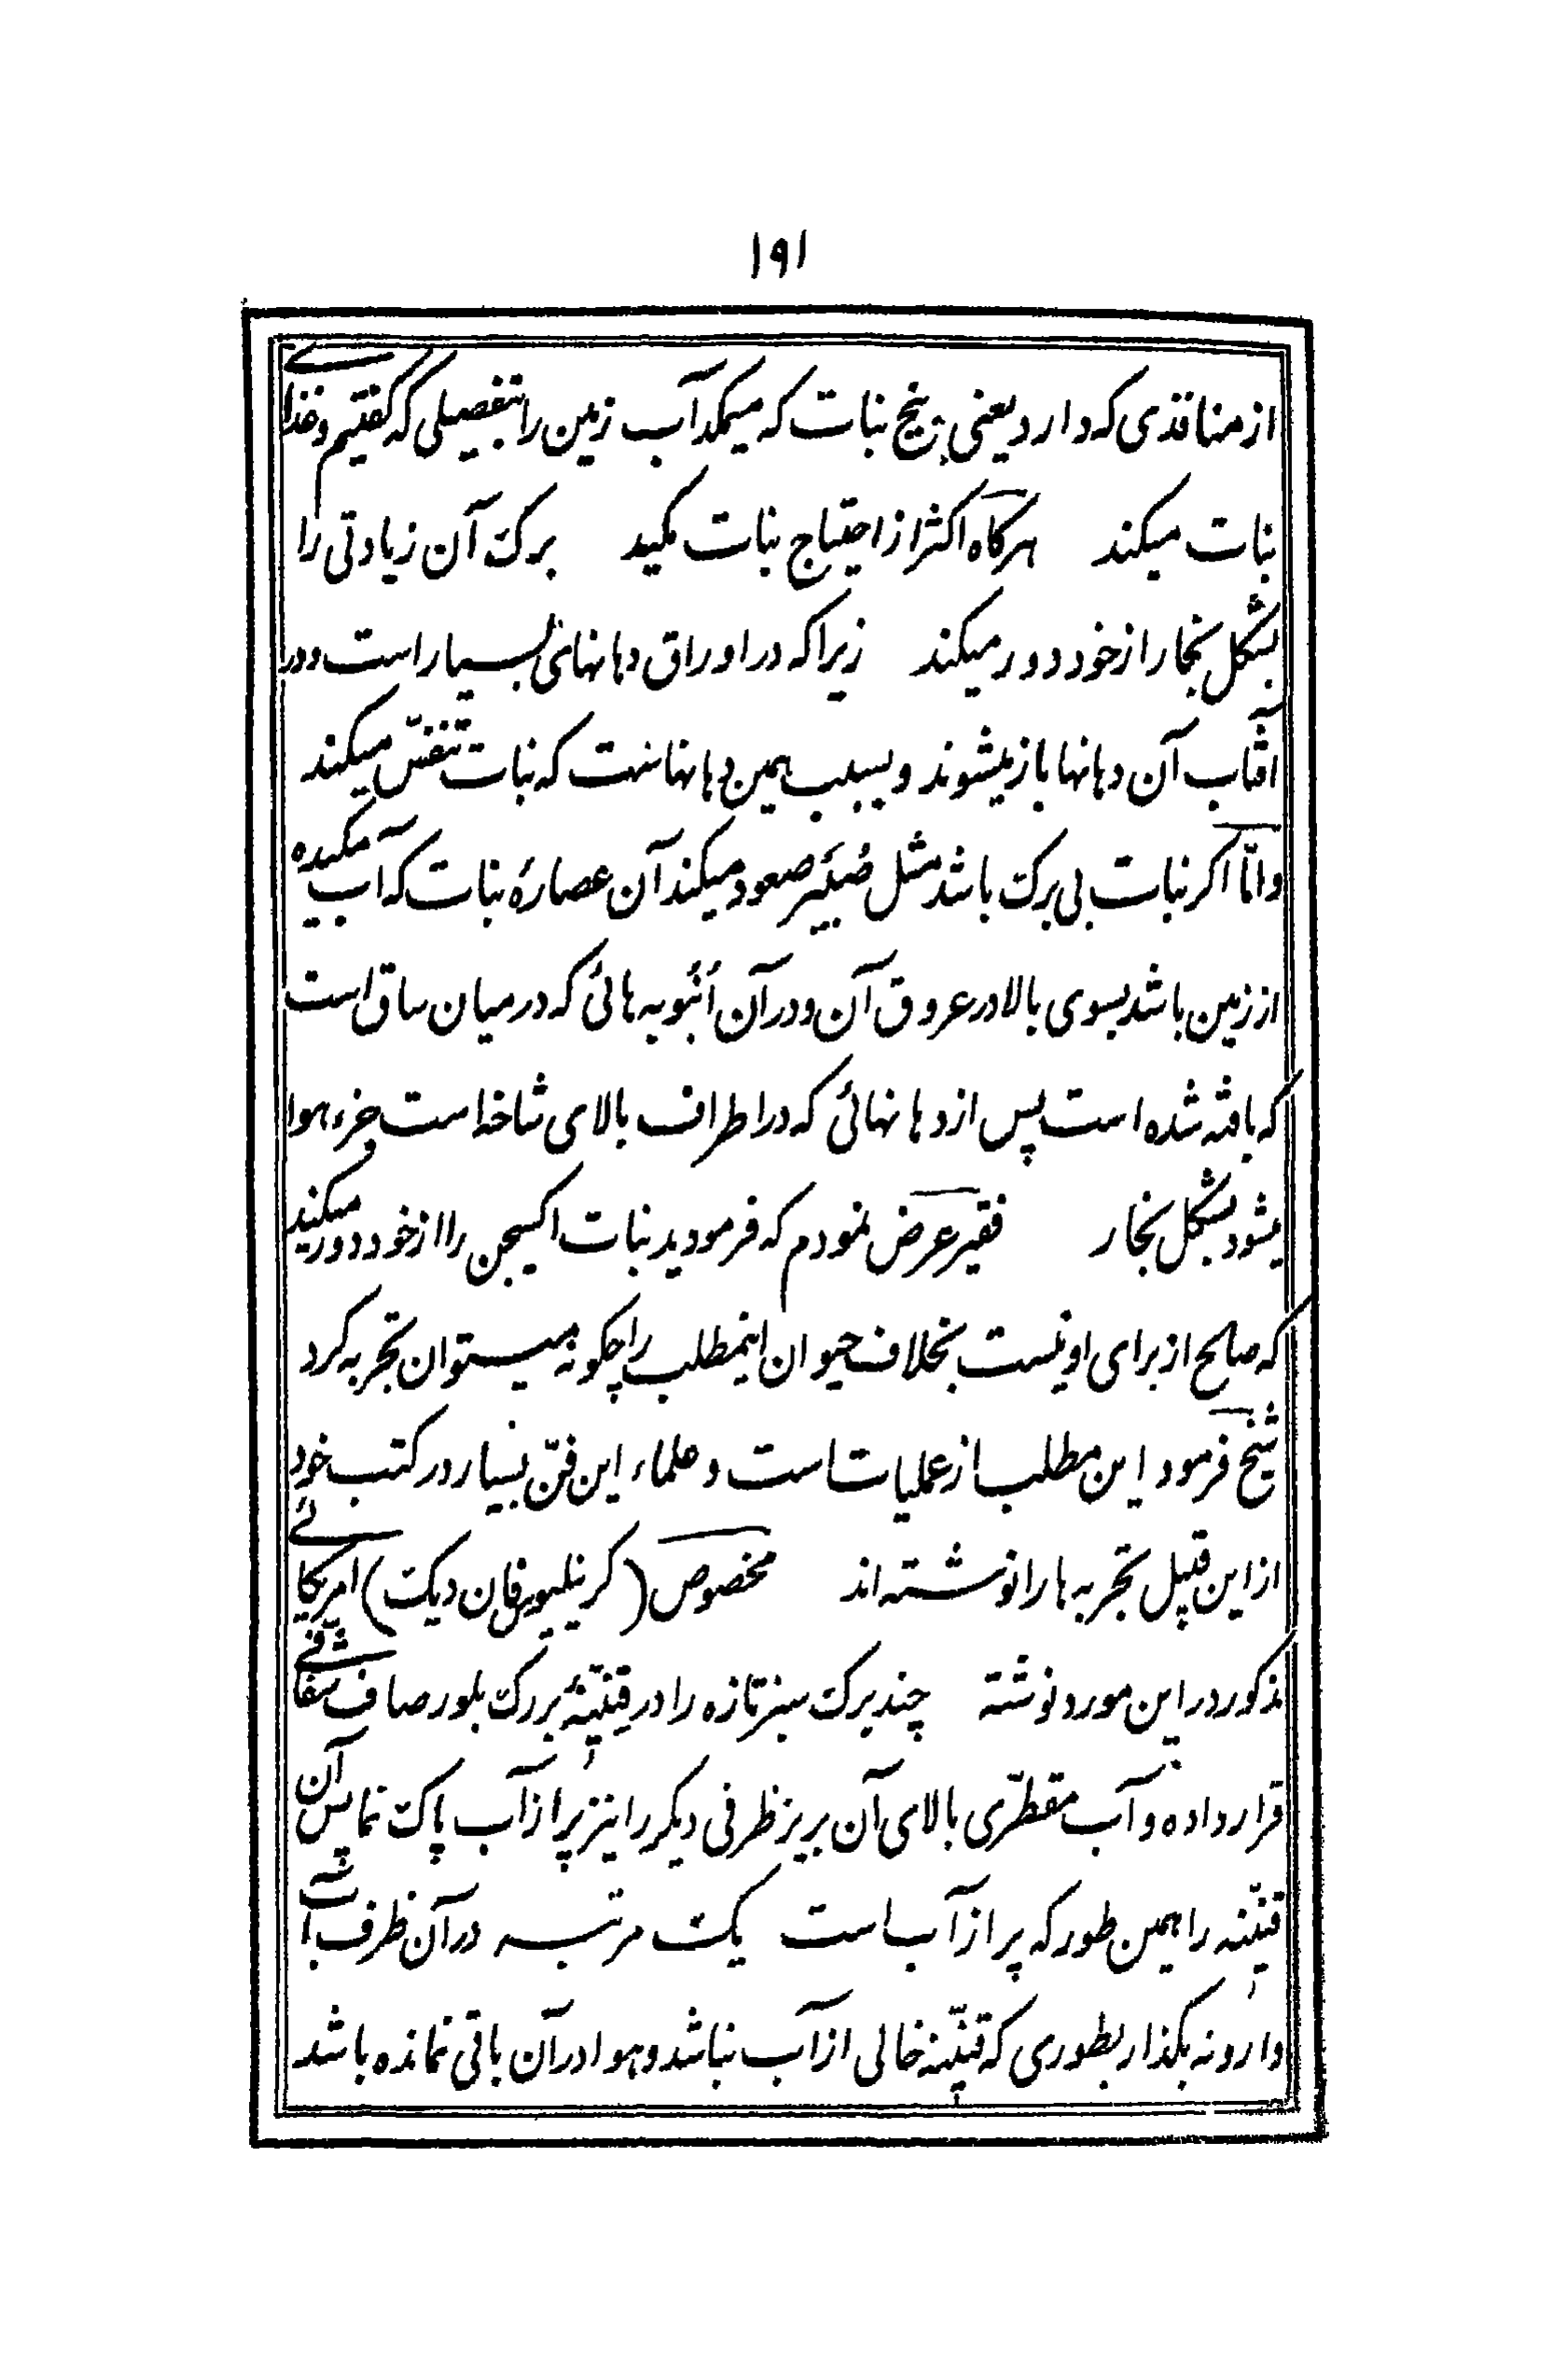 ۱۹۱
از منافذی که دارد یعنی بیخ نبات که میمکد آب زمین را بتفصیلی که گفتیم و غذای
نبات میکند هرگاه اکثر از احتیاج نبات مکید برک آن زیادتی را
بشکل بخار از خود دور میکند زیرا که در اوراق دهانهای بسیار است و در
آفتاب آن دهانها باز میشوند و بسبب همین دهانهاست که نبات تنفس میکند
و امّا اکر نبات بی برک باشد مثل صُبَیر صعود میکند آن عصارۀ نبات که آب مکیده
از زمین باشد بسوی بالا در عروق آن و در آن اُنبُوبه هائی که در میان ساق است
که بافته شده است پس از دهانهائی که در اطراف بالای شاخه است جزء هوا
میشود بشکل بخار فقیر عرض نمودم که فرمودید نبات اکسیجن را از خود دور میکند
که صالح از برای او نیست بخلاف حیوان اینمطلب را چکونه میتوان تجربه کرد
شیخ فرمود این مطلب از عملیات است و علماء این فنّ بسیار در کتب خود
از این قبیل تجربه ها را نوشته اند مخصوص (کرنیلیوس فان دیک) امریکائی
مذکور در این مورد نوشته چند برک سبز تازه را در قنّینۀ بزرک بلور صاف شفّافی
قرار داده و آب مقطّری بالای آن بریز ظرفی دیکر را نیز پر از آب پاک نما پس آن
قنّینه را همین طور که پر از آب است یک مرتبه در آن ظرف آب
وارونه بکذار بطوری که قنّینه خالی از آب نباشد و هوا در آن باقی نمانده باشد